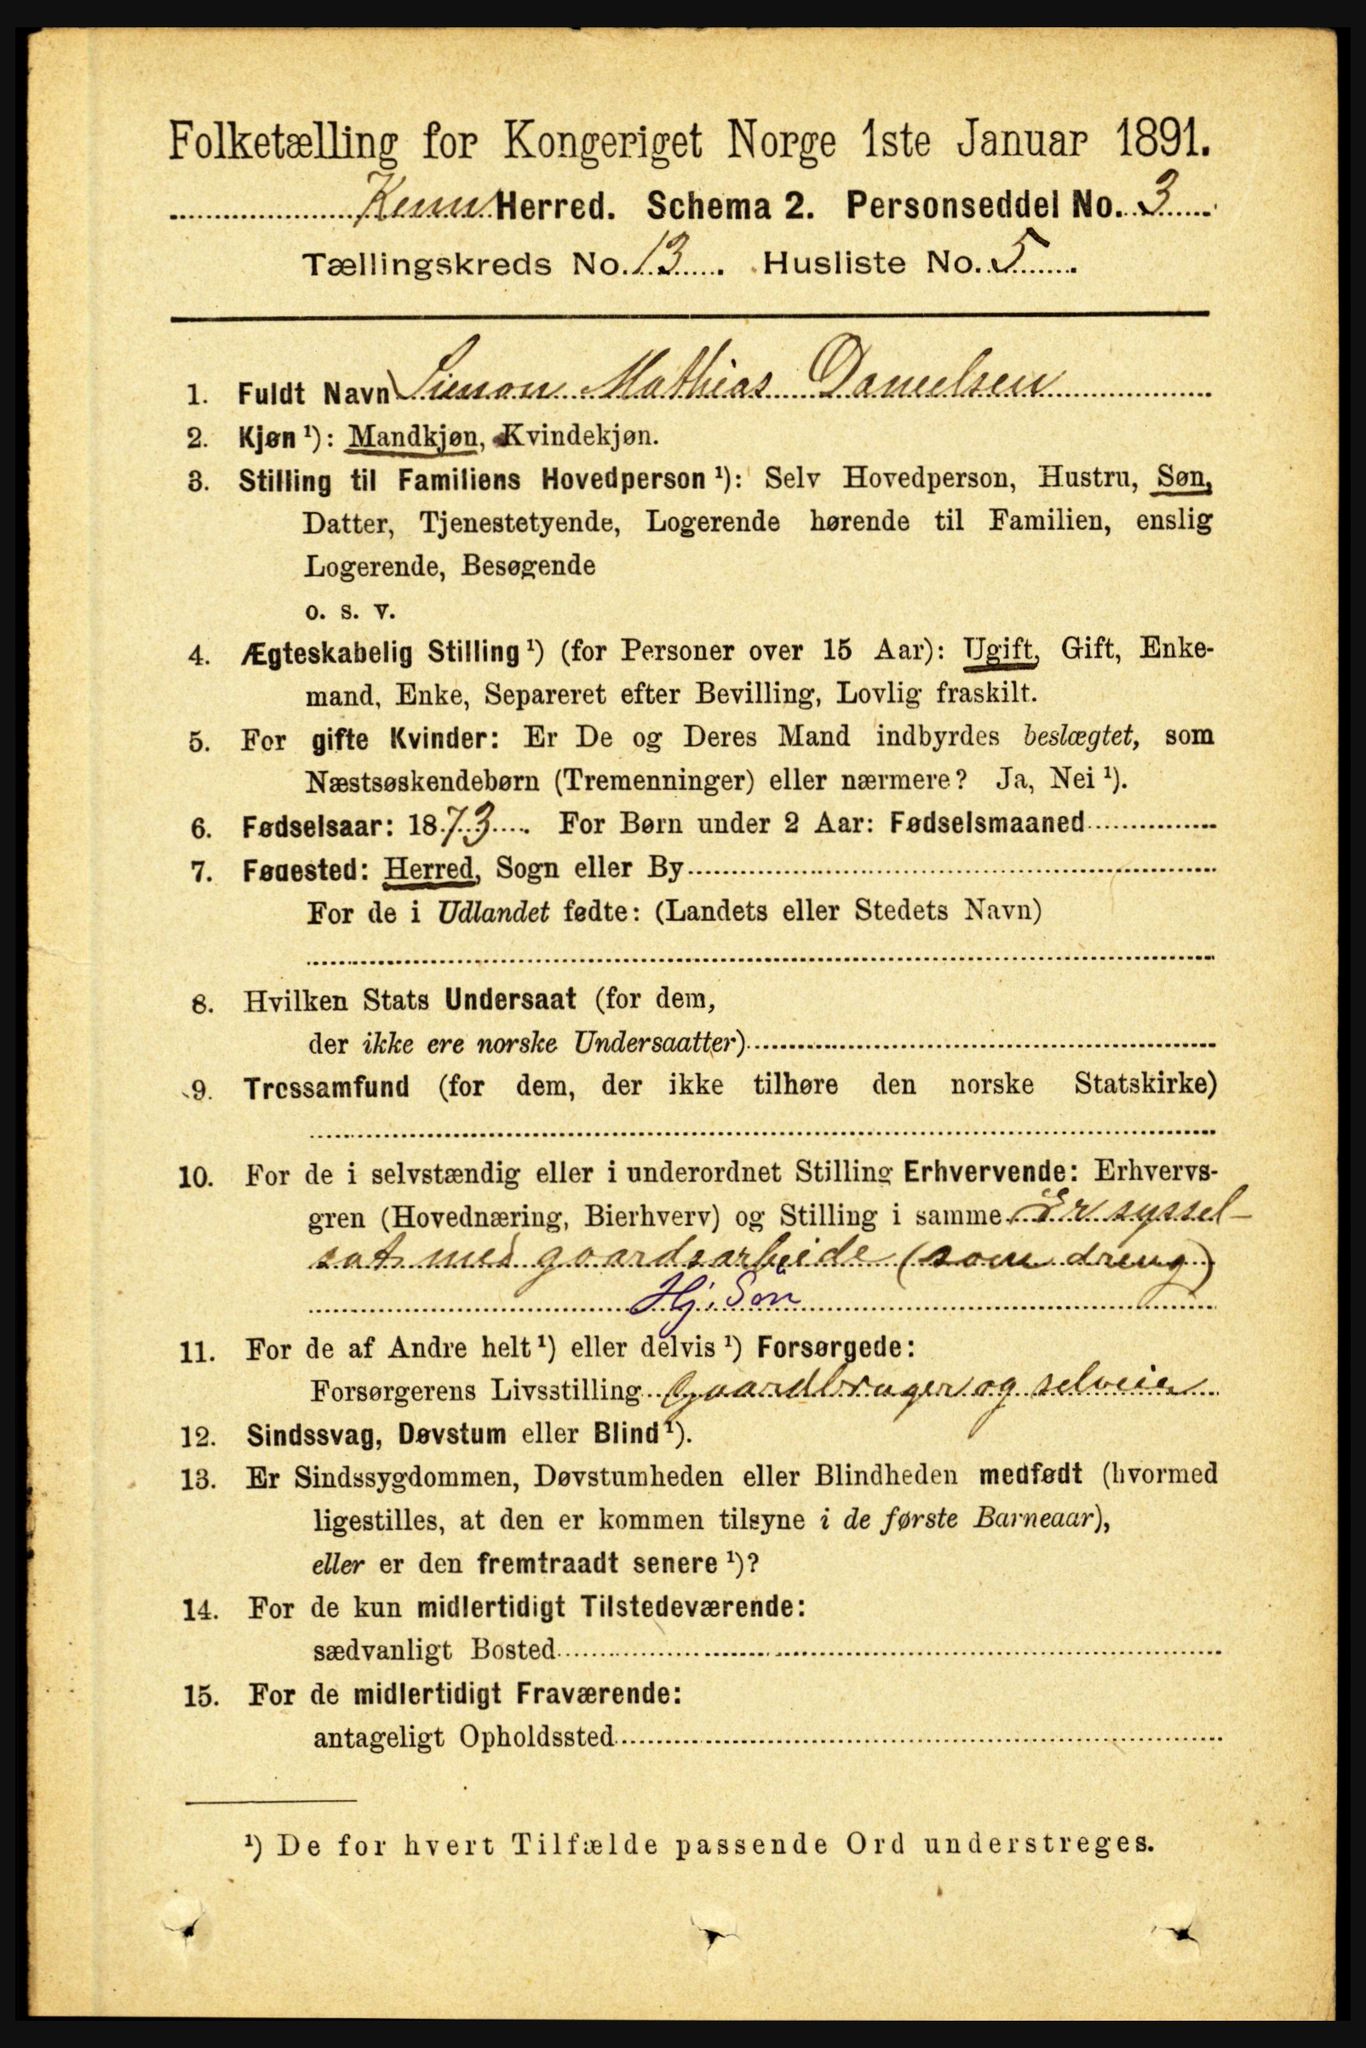 Folketælling for Kongeriget Norge 1ste Januar 1891.
Kinn Herred. Schema 2. Personseddel No. 3
Tællingskreds No. 13. Husliste No. 5
1. Fuldt Navn Simon Mathias Danielsen
2. Kjøn ¹): Mandkjøn, Kvindekjøn.
3. Stilling til Familiens Hovedperson ¹): Selv Hovedperson, Hustru, Søn,
Datter, Tjenestetyende, Logerende hørende til Familien, enslig
Logerende, Besøgende
o. s. v.
4. Ægteskabelig Stilling ¹) (for Personer over 15 Aar): Ugift, Gift, Enke-
mand, Enke, Separeret efter Bevilling, Lovlig fraskilt.
5. For gifte Kvinder: Er De og Deres Mand indbyrdes beslægtet, som
Næstsøskendebørn (Tremenninger) eller nærmere? Ja, Nei ¹).
6. Fødselsaar: 1873. For Børn under 2 Aar: Fødselsmaaned
7. Fødested: Herred, Sogn eller By
For de i Udlandet fødte: (Landets eller Stedets Navn)
8. Hvilken Stats Undersaat (for dem,
der ikke ere norske Undersaatter)
9. Trossamfund (for dem, der ikke tilhøre den norske Statskirke)
10. For de i selvstændig eller i underordnet Stilling Erhvervende: Erhvervs-
gren (Hovednæring, Bierhverv) og Stilling i samme Er syssel-
sat med gaardsarbeide (som dreng)
Hj. Søn
11. For de af Andre helt ¹) eller delvis ¹) Forsørgede:
Forsørgerens Livsstilling Gaardbruger og selveier
12. Sindssvag, Døvstum eller Blind ¹).
13. Er Sindssygdommen, Døvstumheden eller Blindheden medfødt (hvormed
ligestilles, at den er kommen tilsyne i de første Barneaar),
eller er den fremtraadt senere ¹)?
14. For de kun midlertidigt Tilstedeværende:
sædvanligt Bosted
15. For de midlertidigt Fraværende:
antageligt Opholdssted
¹) De for hvert Tilfælde passende Ord understreges.